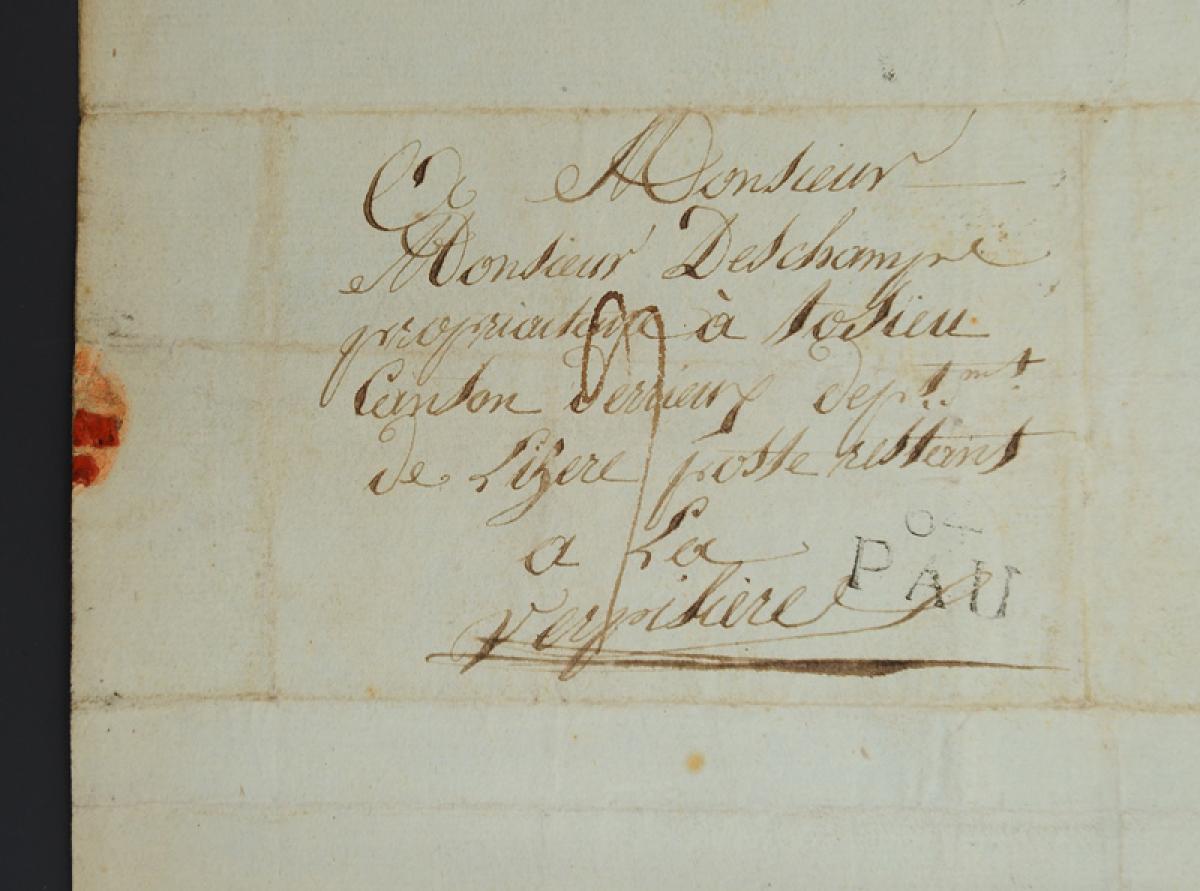 A Monsieur
Monsieur Deschampe
propriaitaire à tosieu
Canton derrieux dept.mt
de Lizere poste restant
a La
verpiliere
PAU